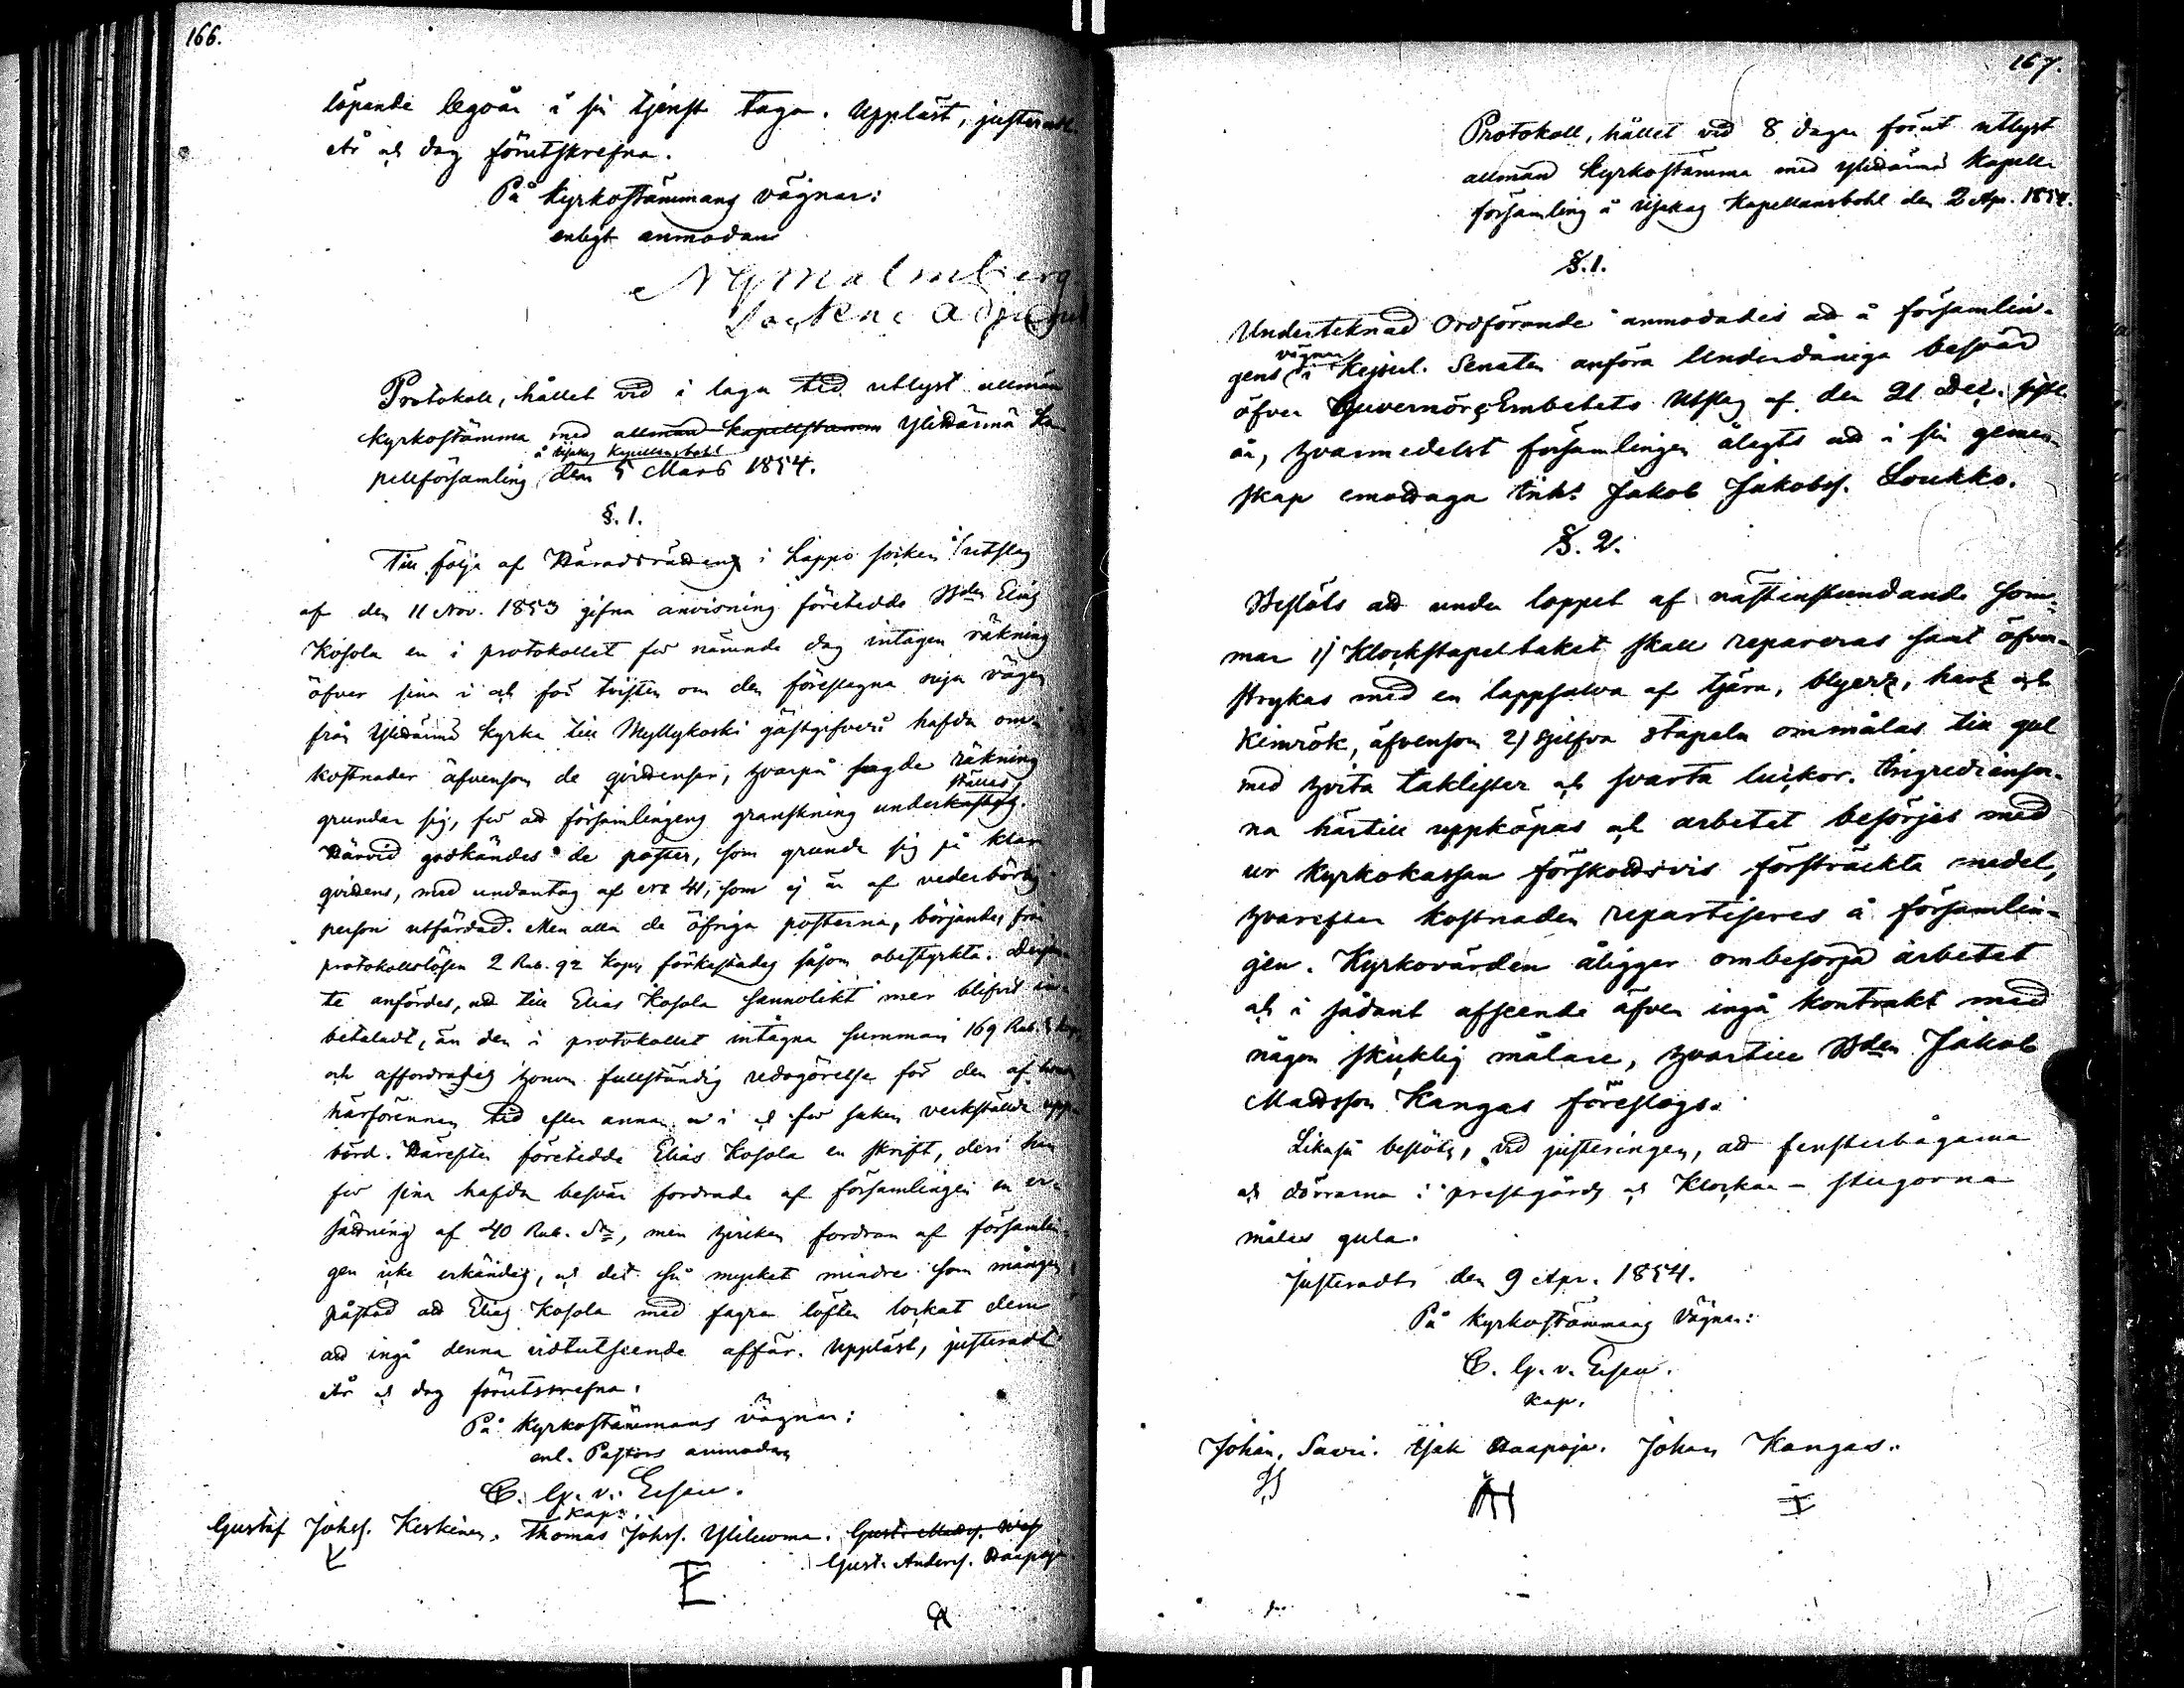 166.
löpande legoår i sin tjenst taga. Uppläst, justeradt
År och dag förutskrefna.
På Kyrkostämmans vägnar:
enligt anmodan
N G Malmberg
Sockne Adjunct
Protokoll, hållet vid i laga tid utlyst allmän
kyrkostämma med allmän kapellstämma Ylihärmä Ka
å Ujskas Kapellansbohl
pellförsamling den 5 Mars 1854.
§. 1.
Till följe af Häradsrättens i Lappo socken utslag
af den 11 Nov. 1853 gifna anvisning företedde Bden Elias
Kosola en i protokollet för nämnde dag intagen räkning
öfver sina i och för tvisten om den föreslagna nya vägen
från Ylihärmä kyrka till Myllykoski gästgifveri hafda om-
kostnader äfvensom de qvittenser, hvarpå sagde räkning
ställas
grundar sig, för att församlingens granskning underkastas.
Härvid godkändes de poster, som grunda sig på klara
qvittens, med undantag af N:o 41, som ej är af vederbörlig
person utfärdad. Men alla de öfriga posterna, börjandes från
protokollslösen 2 Rub. 92 kop, förkastades såsom obestyrkta. Dessu-
te anfördes, att till Elias Kosola sannolikt mer blifvit in-
betaladt, än den i protokollet intagna summan 169 Rub. 5 kop,
och affordrades honom fullständig redogörelse för den af honom
härförinnan tid efter annan i och för saken verkställde upp-
börd. Härefter företedde Elias Kosola en skrift, deri han
för sina hafda besvär fordrade af församlingen en er-
sättning af 40 Rub. S:r, men hvilken fordran af församlin-
gen icke erkändes, och det så mycket mindre som mången
påstod att Elias Kosola med fagra löften lockat dem
att ingå denna vidtutseende affär. Uppläst, justeradt
År och dag förutskrefna.
På Kyrkostämmans vägnar:
enl. Pastors anmodan
C. G. v. Essen.
Kap.
Gustaf Johss. Keskinen. Thomas Johss. Yliluoma. Gust. Matts.
Gust. Anders. Haapoja.
167.
Protokoll, hållet vid 8 dagar förut utlyst
allmän Kyrkostämma med Ylihärmä Kapell-
församling å Ujskas Kapellansbohl den 2 Apr. 1854.
§. 1.
Undertecknad Ordförande anmodades att å församlin-
vägnar
gens i Kejserl. Senaten anföra Underdåniga besvär
öfver Guvernörs Embetets Utslag af den 21 Dec. sistl.
år, hvarmedelst församlingen ålagts att i sin gemen-
skap emottaga Inh. Jakob Jakobss. Loukko.
§. 2.
Beslöts att under loppet af nästinstundande som-
mar 1) Klockstapeltaket skall repareras samt öfver-
strykas med en lappsalva af tjära, blyertz, hartz och
Kimrök, äfvensom 2) sjelfva stapeln ommålas till gul
med hvita taklister och svarta luckor. Ingredienser-
na härtill uppköpas och arbetet besörjes med
ur Kyrkokassan förskottsvis försträckta medel,
hvarefter kostnaden repartiseres å församlin-
gen. Kyrkovärden åligger ombesörja arbetet
och i sådant afseende äfven ingå kontrakt med
någon skicklig målare, hvartill Bden Jakob
Mattsson Kangas föreslogs.
Likaså beslöts, vid justeringen, att fensterbågarna
och dörrarna i prestgårds och Klockar-stugorna
målas gula.
Justeradt den 9 Apr. 1854.
På Kyrkostämmans Vägnar:
C. G. v. Essen.
Kap.
Johan Savi. Isak Haapoja. Johan Kangas.